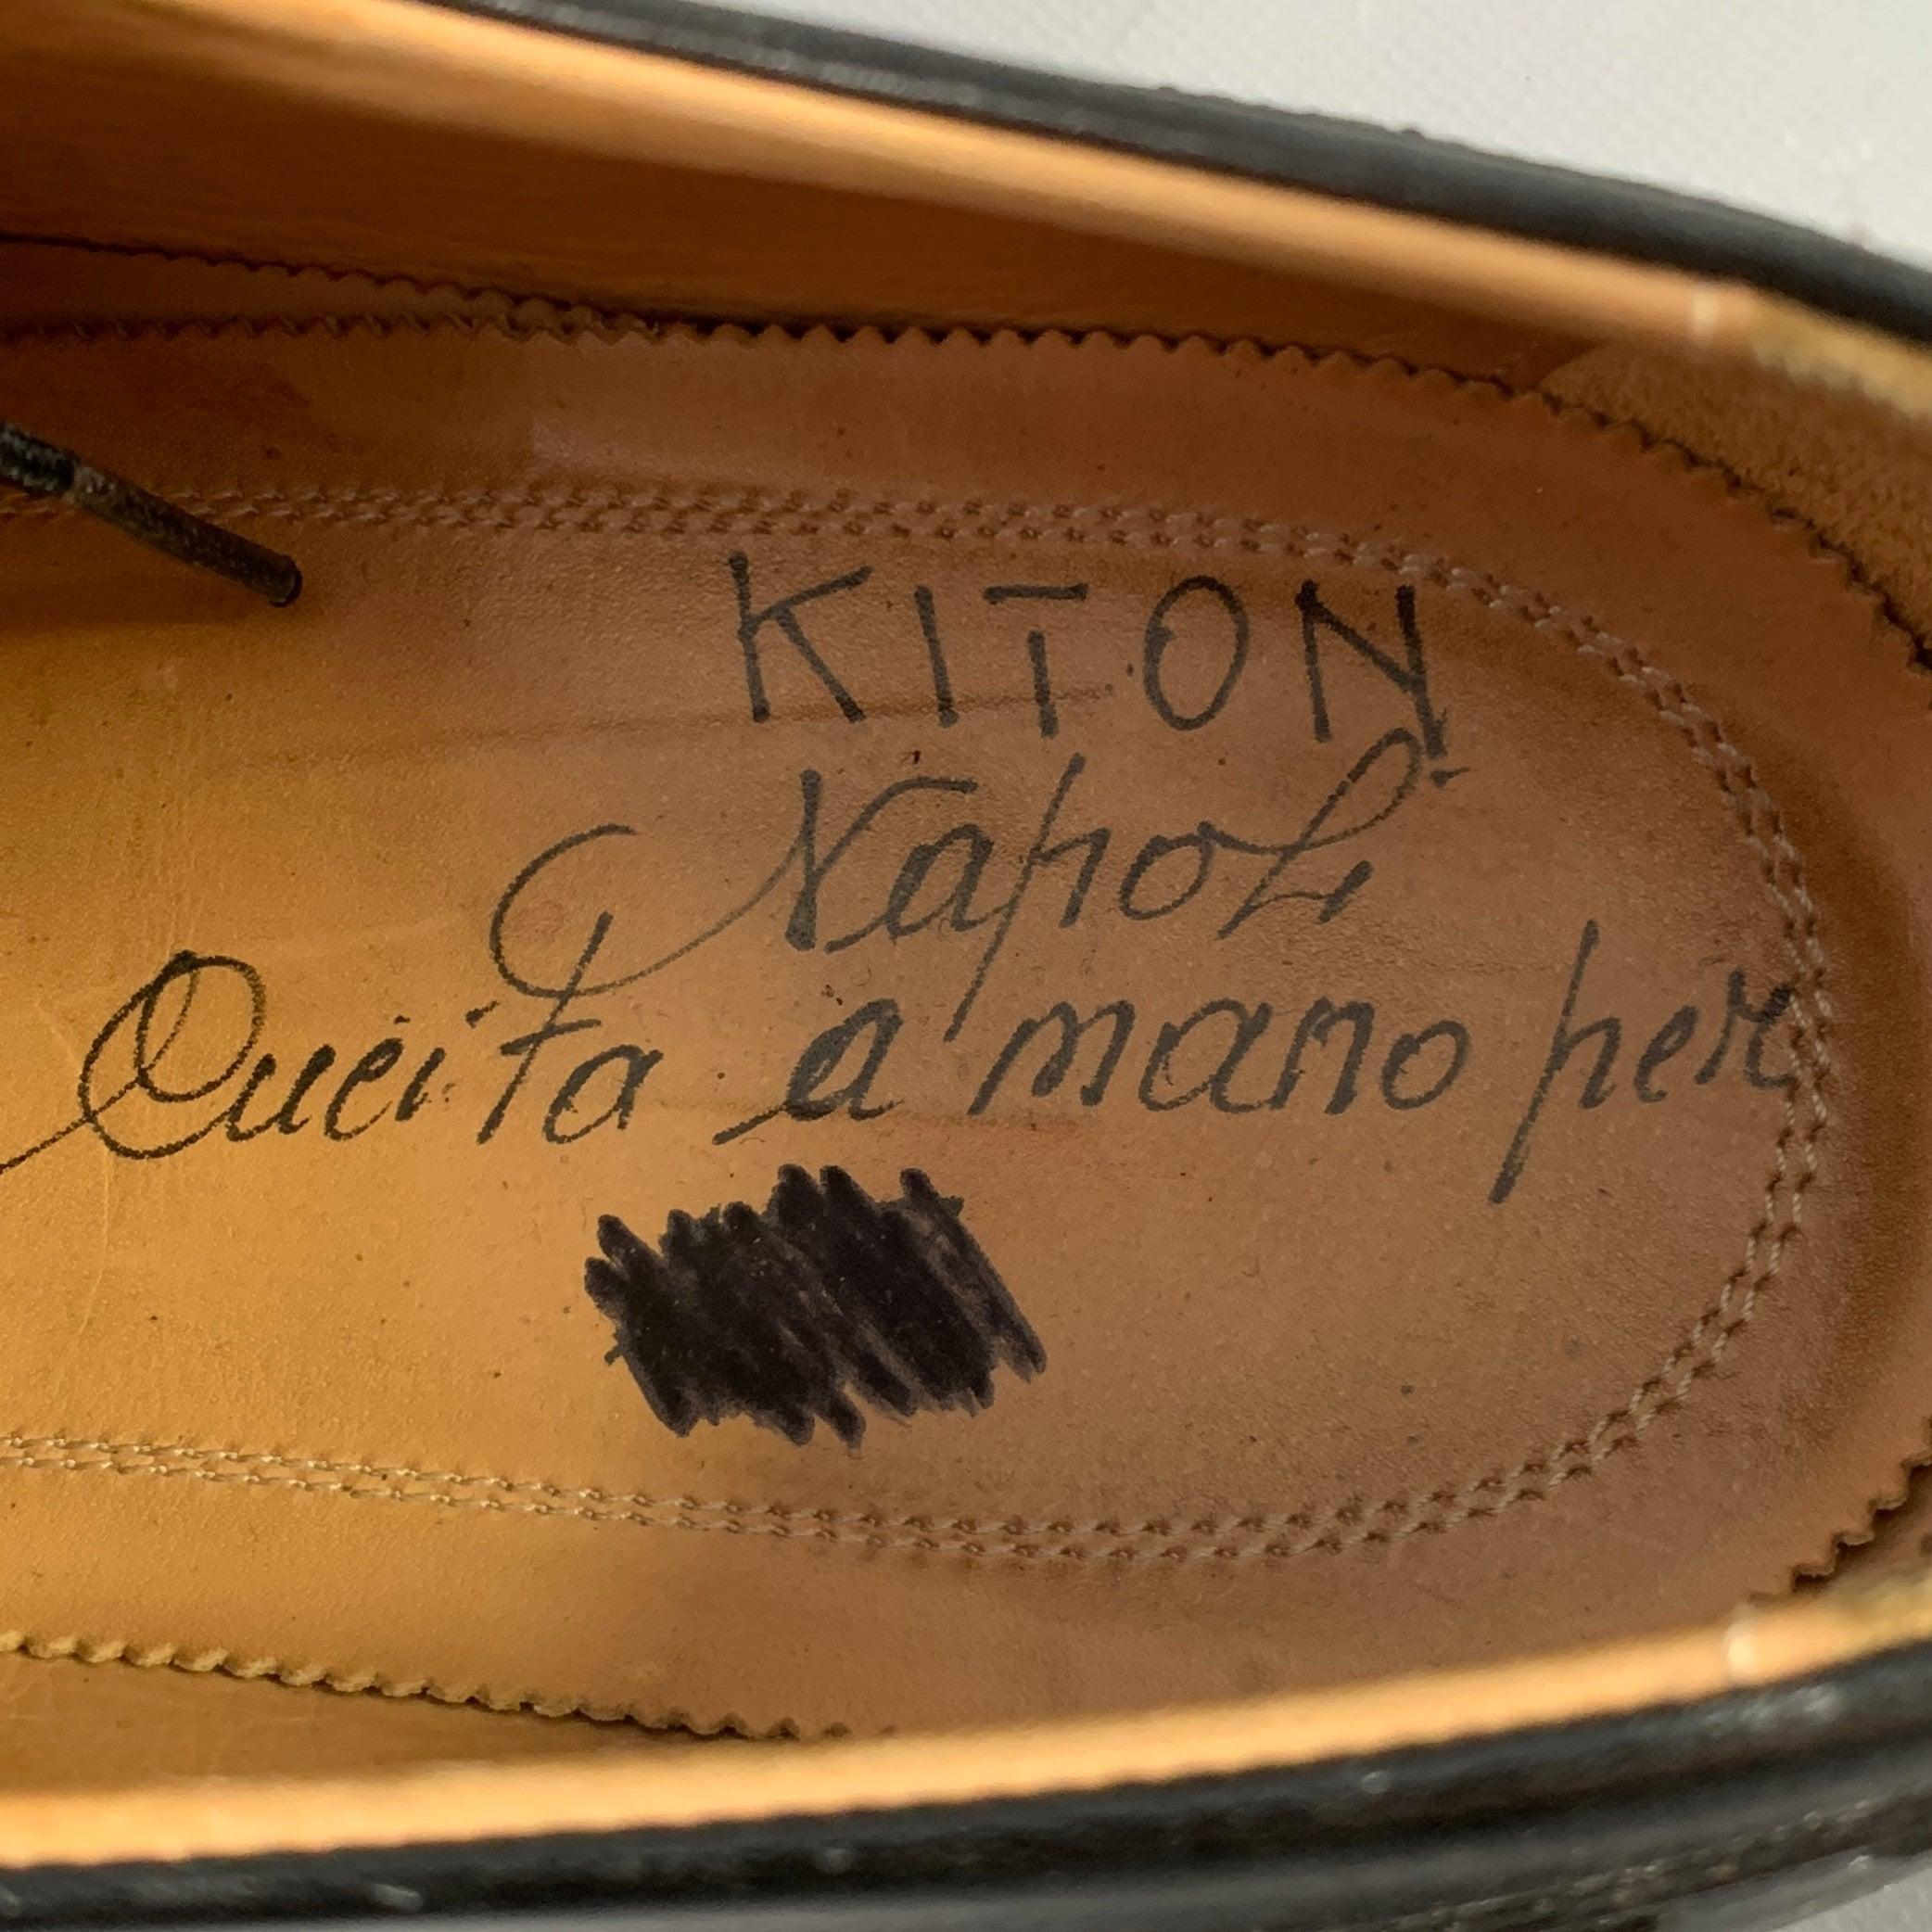 KITON
Napoli
Cucita a mano per